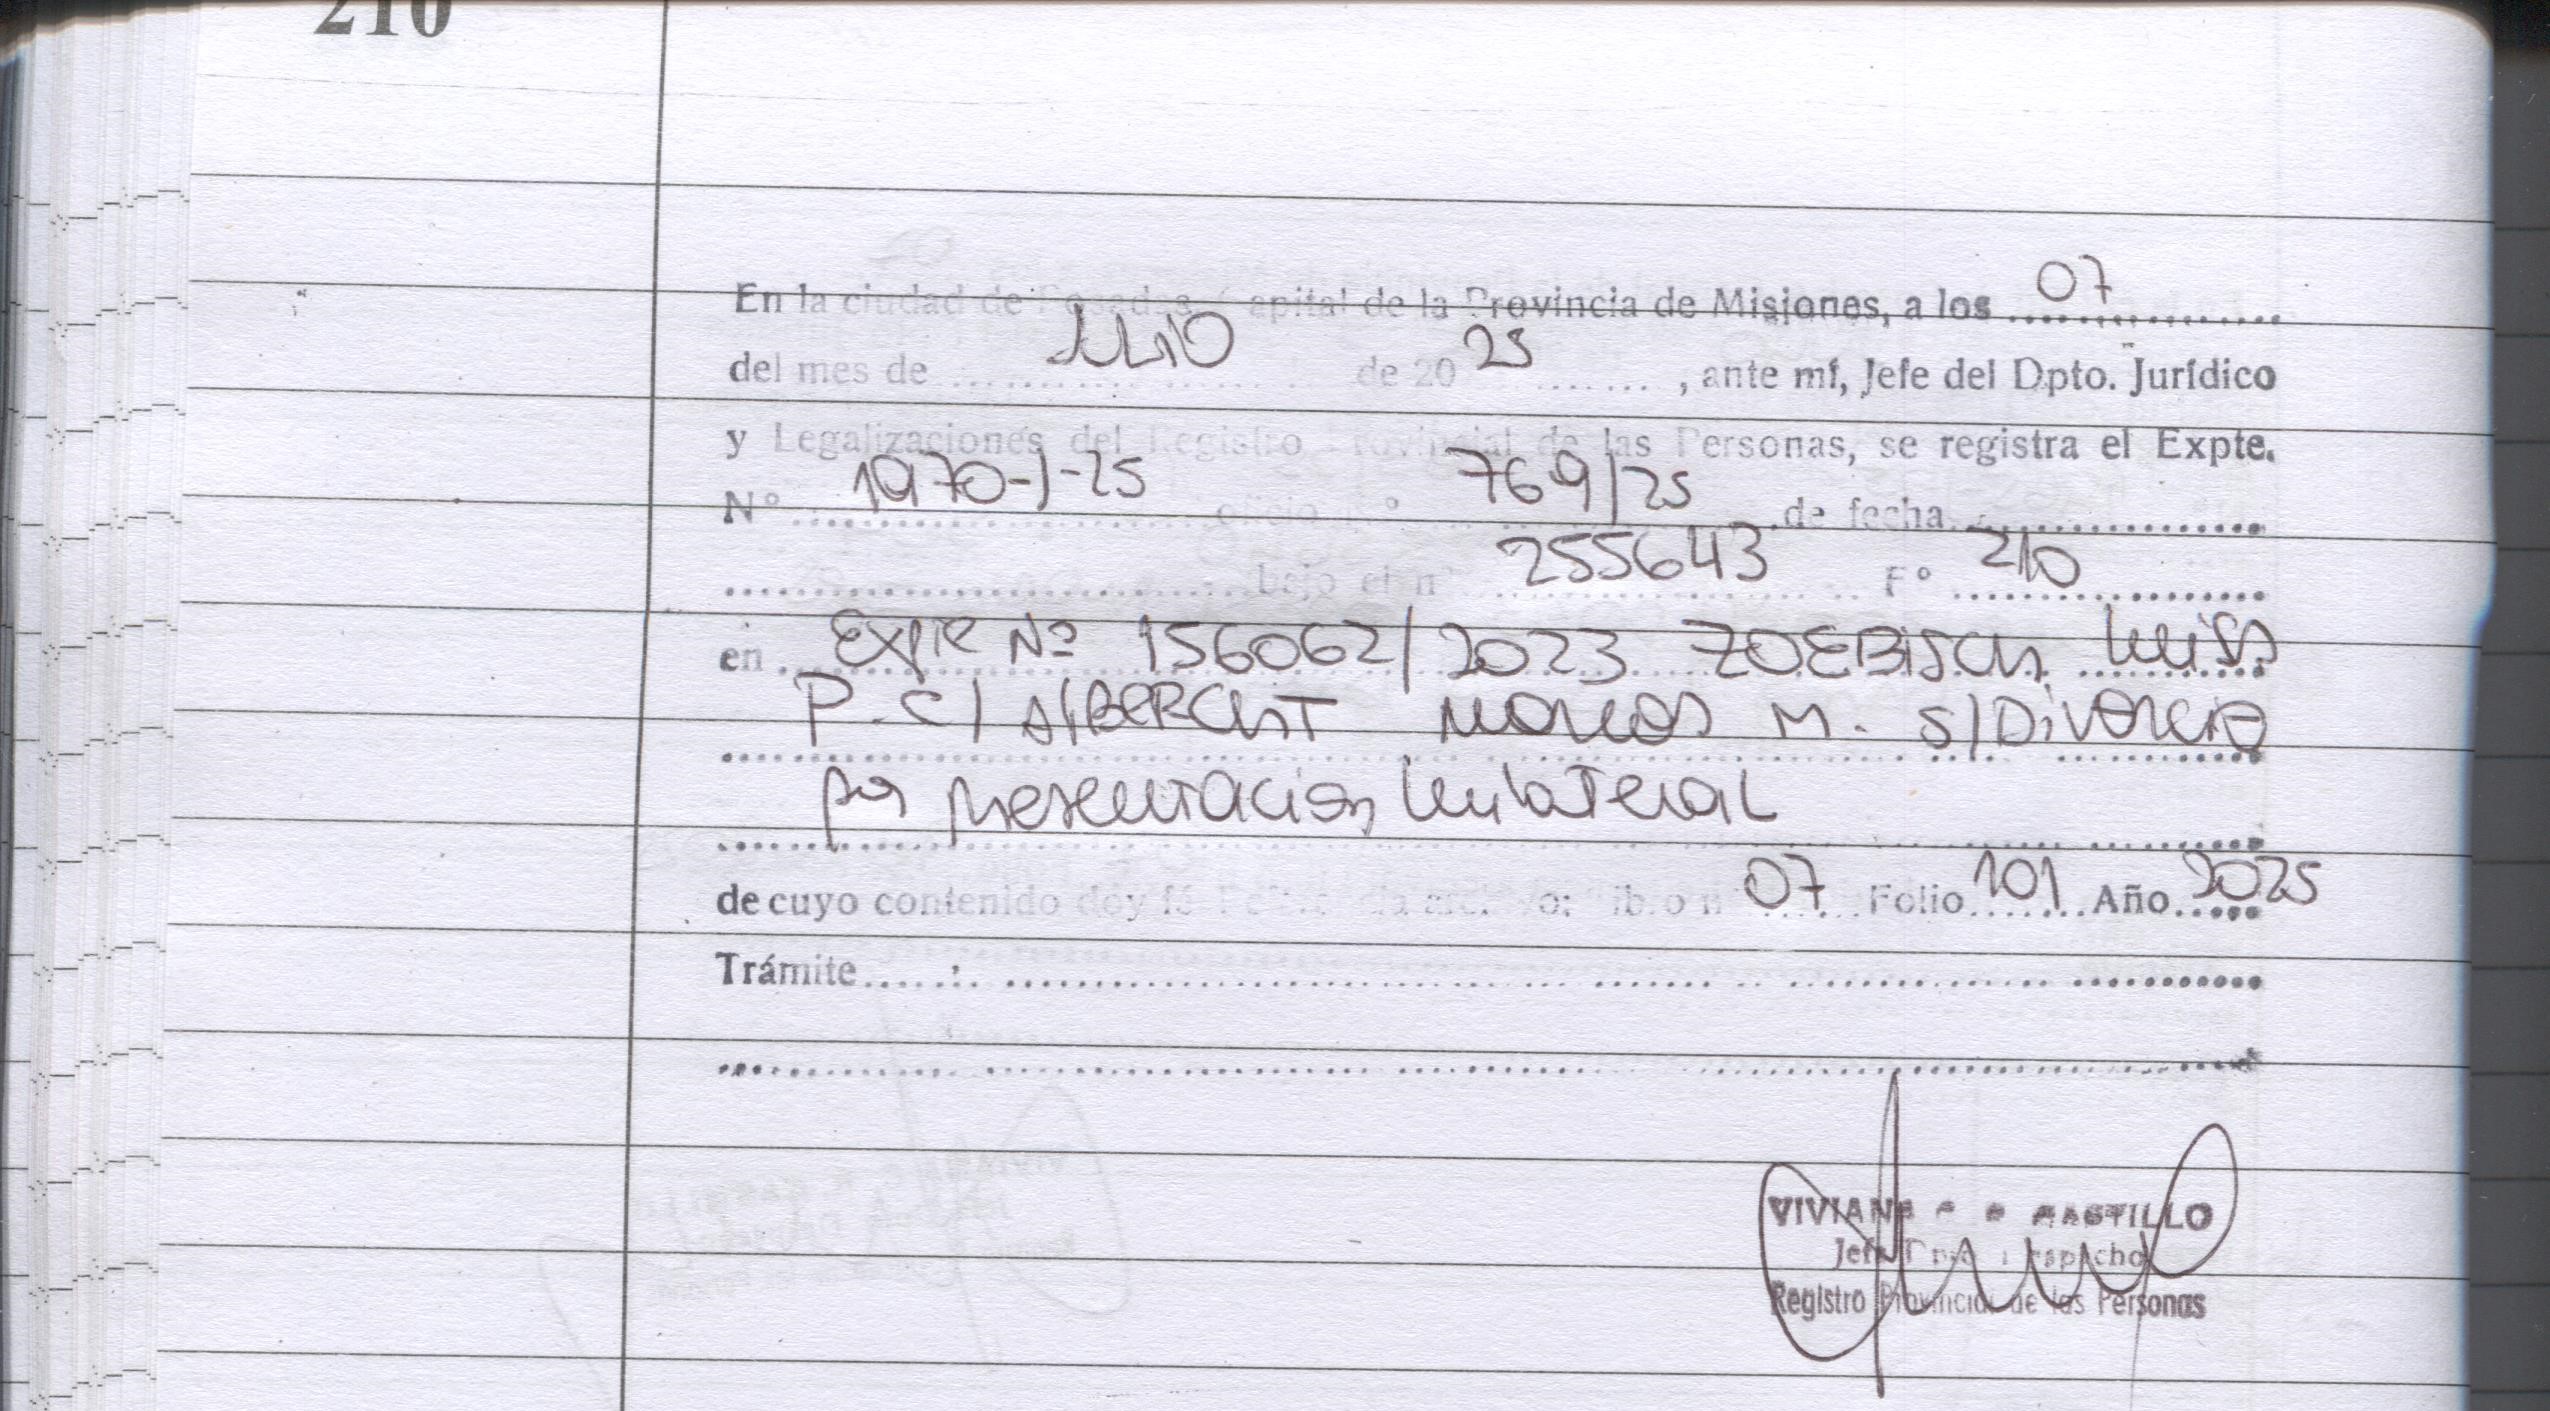 210
En la ciudad de Posadas, Capital de la Provincia de Misiones, a los 07
del mes de JULIO de 20 25, ante mí, Jefe del Dpto. Jurídico
y Legalizaciones del Registro Provincial de las Personas, se registra el Expte.
N° 1970-J-25 oficio n° 769/25 de fecha
bajo el n° 255643 F° 210
en Expte Nº 156062/2023 ZOEBISCH Luisa
P. C/ AlBERCHT Marcos M. S/Divorcio
por presentacion Unilateral
de cuyo contenido doy fé Libro n° 07 Folio 101 Año 2025
Trámite
CASTILLO
Jefe Despacho
Registro Provincial de las Personas